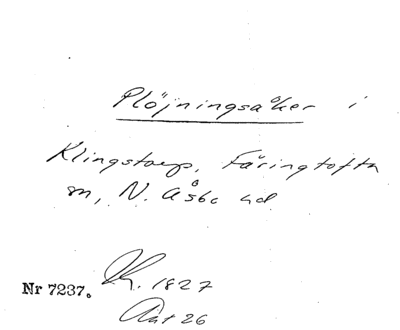 Plöjningsåker i
Klingstorp, Färingtofta
sn, N. Åsbo hd
Nr 7237. K. 1827
Aat 26